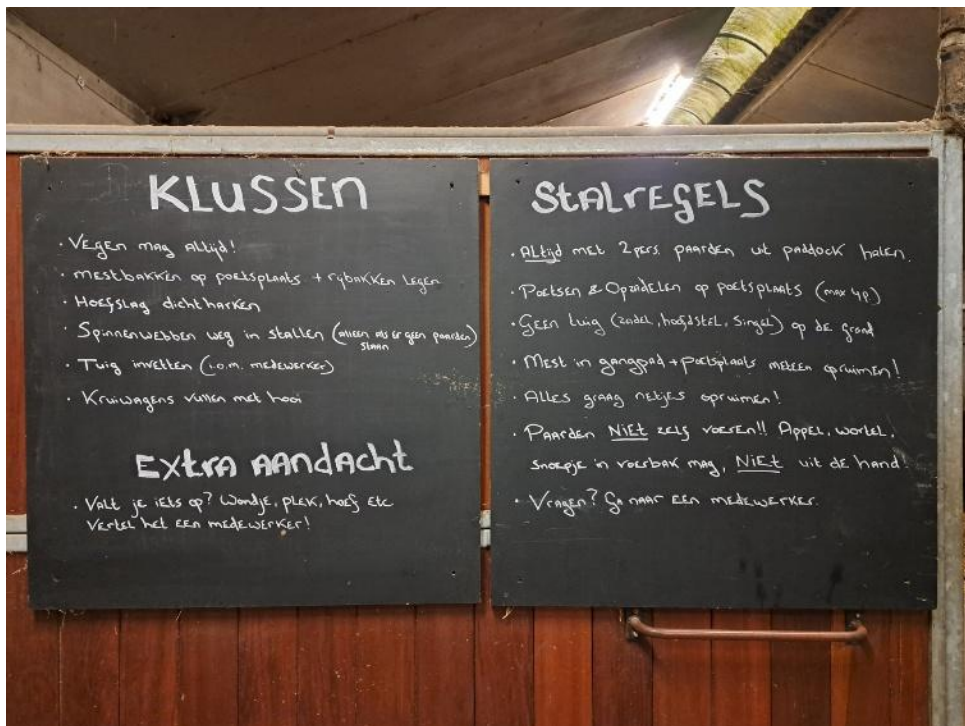 KLUSSEN
· Vegen mag altijd!
· mestbakken op poetsplaats + rijbakken legen
· Hoefslag dichtharken
· Spinnenwebben weg in stallen (alleen als er geen paarden
staan)
· Tuig invetten (i.o.m. medewerker)
· Kruiwagens vullen met hooi
EXTRA AANDACHT
· Valt je iets op? Wondje, plek, hoef etc
Vertel het een medewerker!
STALREGELS
· Altijd met 2 pers. paarden uit paddock halen.
· Poetsen & Opzadelen op poetsplaats (max 4p.)
· Geen tuig (zadel, hoofdstel, singel) op de grond
· Mest in gangpad + poetsplaats meteen opruimen!
· Alles graag netjes opruimen!
· Paarden NIET zelf voeren!! Appel, wortel,
snoepje in voerbak mag, NIET uit de hand!
· Vragen? Ga naar een medewerker.